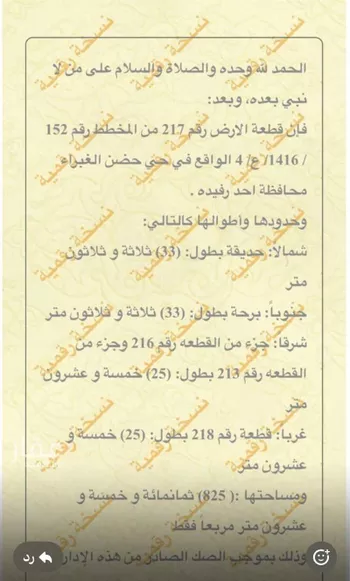 الحمد لله وحده والصلاة والسلام على من لا
نبي بعده، وبعد:
فإن قطعة الارض رقم 217 من المخطط رقم 152
/ 1416/ ع/ 4 الواقع في حي حضن الغبراء
محافظة احد رفيده .
وحدودها وأطوالها كالتالي:
شمالا: حديقة بطول: (33) ثلاثة و ثلاثون
متر
جنوباً: برحة بطول: (33) ثلاثة و ثلاثون متر
شرقا: جزء من القطعه رقم 216 وجزء من
القطعه رقم 213 بطول: (25) خمسة و عشرون
متر
غربا: قطعة رقم 218 بطول: (25) خمسة و
عشرون متر
ومساحتها :( 825) ثمانمائة و خمسة و
عشرون متر مربعا فقط
وذلك بموجب الصك الصادر من هذه الإدار
رد
نسخة رقمية